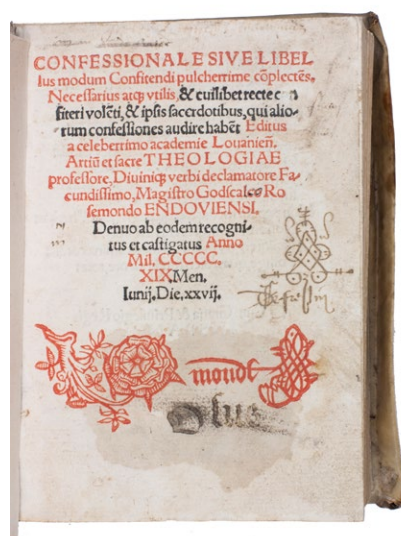 CONFESSIONALE SIVE LIBEL
lus modum Confitendi pulcherrime cõplectẽs,
Necessarius atq; vtilis, & cuilibet recte cõ
fiteri volẽti, & ipsis sacerdotibus, qui alio-
rum confessiones audire habẽt Editus
a celeberrimo academie Louaniẽñ.
Artiũ et sacre THEOLOGIAE
professore, Diuiniq; verbi declamatore Fa-
cundissimo, Magistro Godscalco Ro
semondo ENDOVIENSI.
Denuo ab eodem recogni-
tus et castigatus Anno
Mil, CCCCC,
XIX, Men.
Iunij. Die, xxvij.
monde